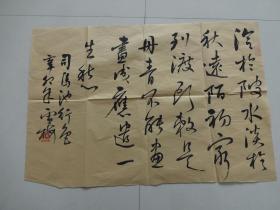 冷於陂水淡於
秋遠陌初窮
到渡頭賴是
丹青不能畫
畫成應遣一
生愁
司马池行色
辛卯年雲